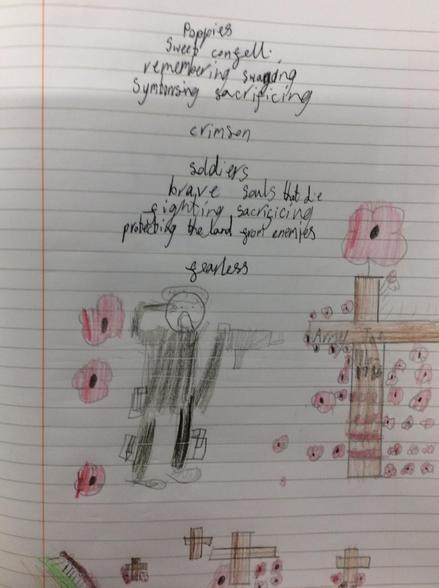 Poppies
Sweet
remembering
Symbolising sacrificing
crimson
soldiers
brave souls that die
fighting sacrificing
protecting the land from enemies
fearless
Army